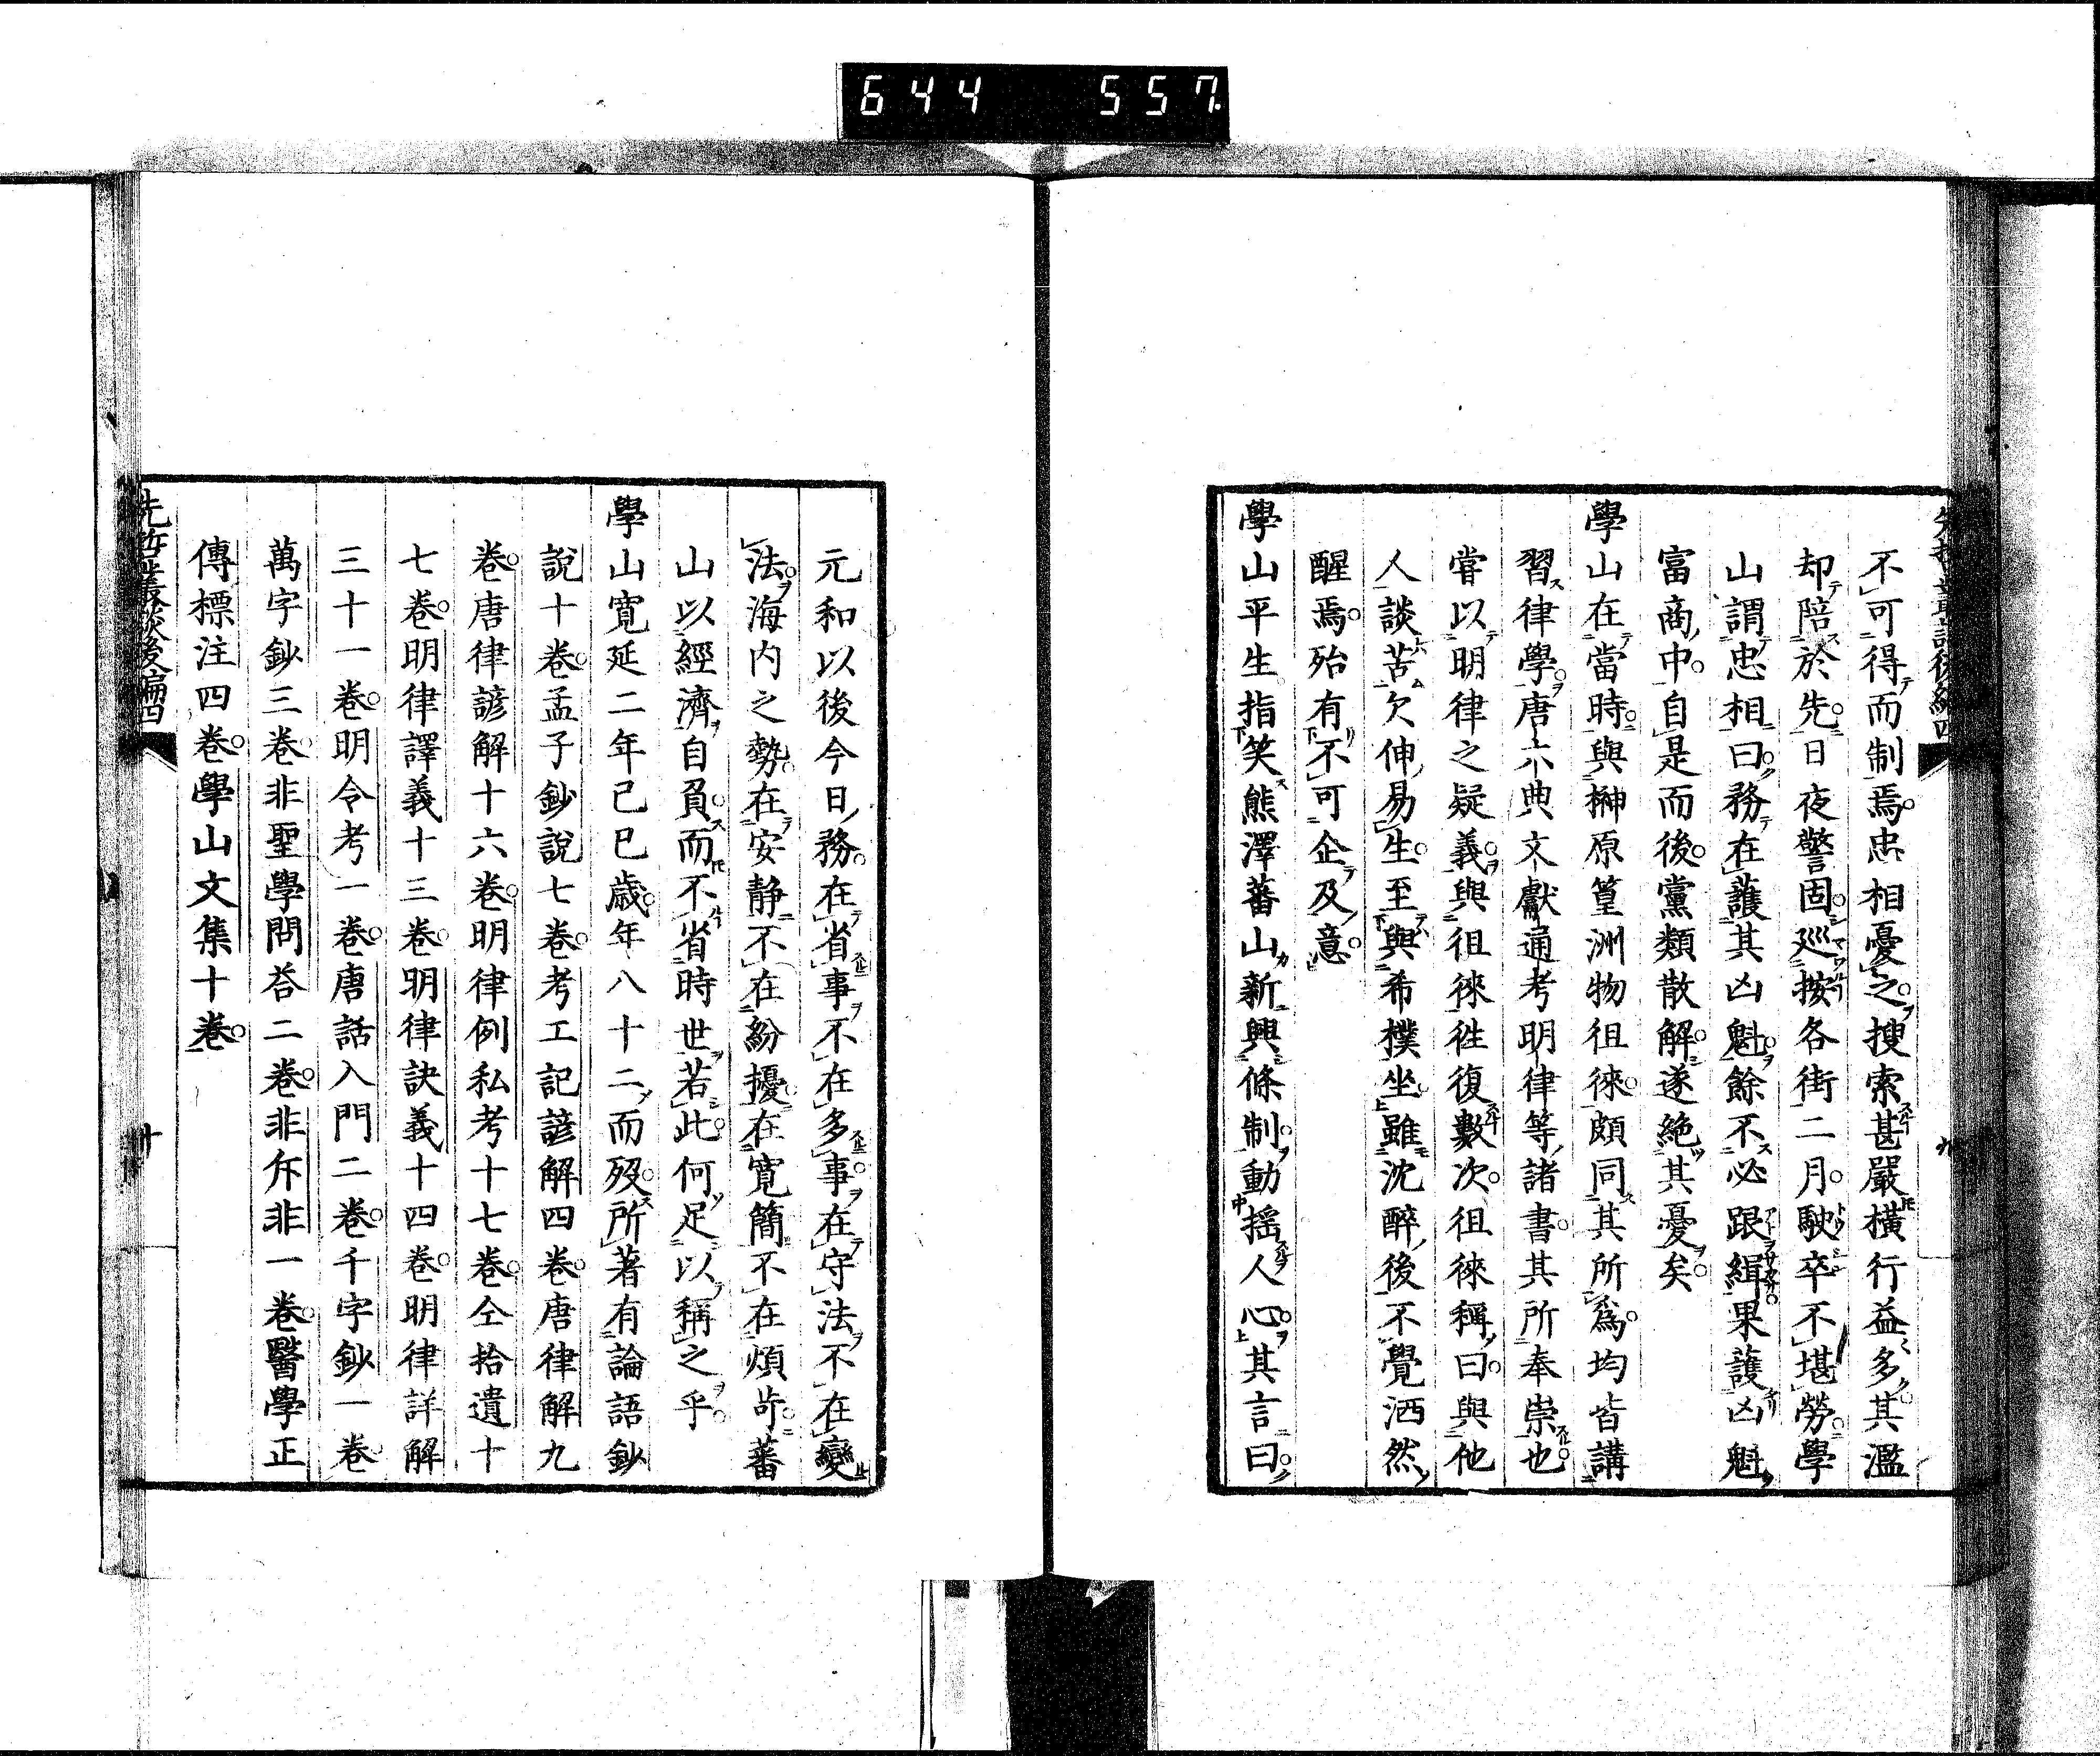 644 557.
先哲叢談後編四
不可得而制焉忠相憂之搜索甚嚴橫行益多其濫
却陪於先日夜警固巡按各街二月駛卒不堪勞學
山謂忠相曰務在護其凶魁餘不必跟緝果護凶魁
富商中自是而後黨類散解遂絶其憂矣
學山在當時與榊原篁洲物徂徠頗同其所爲均皆講
習律學唐六典文獻通考明律等諸書其所奉崇也
嘗以明律之疑義與徂徠徃復數次徂徠稱曰與他
人談苦欠伸易生至與希樸坐雖沈醉後不覺洒然
醒焉殆有不可企及意
學山平生指笑熊澤蕃山新興條制動搖人心其言曰
九
元和以後今日務在省事不在多事在守法不在變
法海内之勢在安静不在紛擾在寬簡不在煩苛蕃
山以經濟自負而不省時世若此何足以稱之乎
學山寬延二年己巳歳年八十二而歿所著有論語鈔
說十卷孟子鈔說七卷考工記諺解四卷唐律解九
卷唐律諺解十六卷明律例私考十七卷仝拾遺十
七卷明律譯義十三卷明律訣義十四卷明律詳解
三十一卷明令考一卷唐話入門二卷千字鈔一卷
萬字鈔三卷非聖學問荅二卷非斥非一卷醫學正
傳標注四卷學山文集十卷
先哲叢談後編四
十